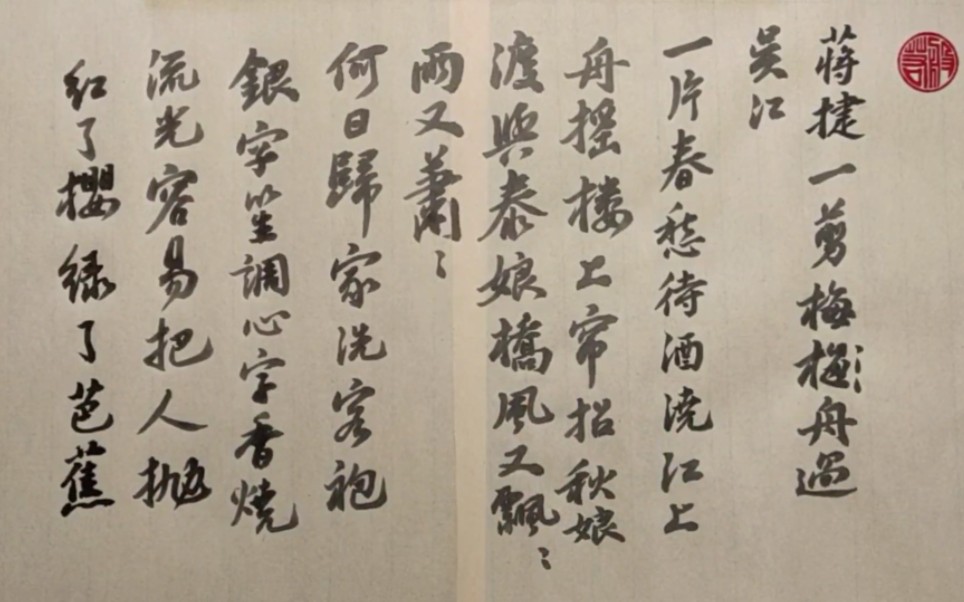 蔣捷一剪梅梅舟過
吴江
一片春愁待酒澆江上
舟摇楼上帘招秋娘
渡與泰娘橋風又飄〻
雨又蕭〻
何日歸家洗客袍
銀字笙調心字香燒
流光容易把人抛
红了櫻绿了芭蕉